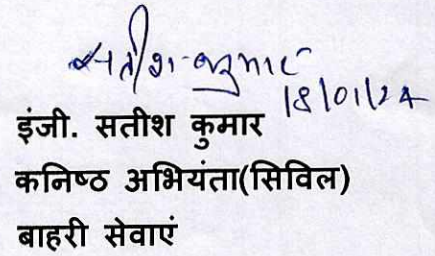 सतीश कुमार
18/01/24
इंजी. सतीश कुमार
कनिष्ठ अभियंता(सिविल)
बाहरी सेवाएं